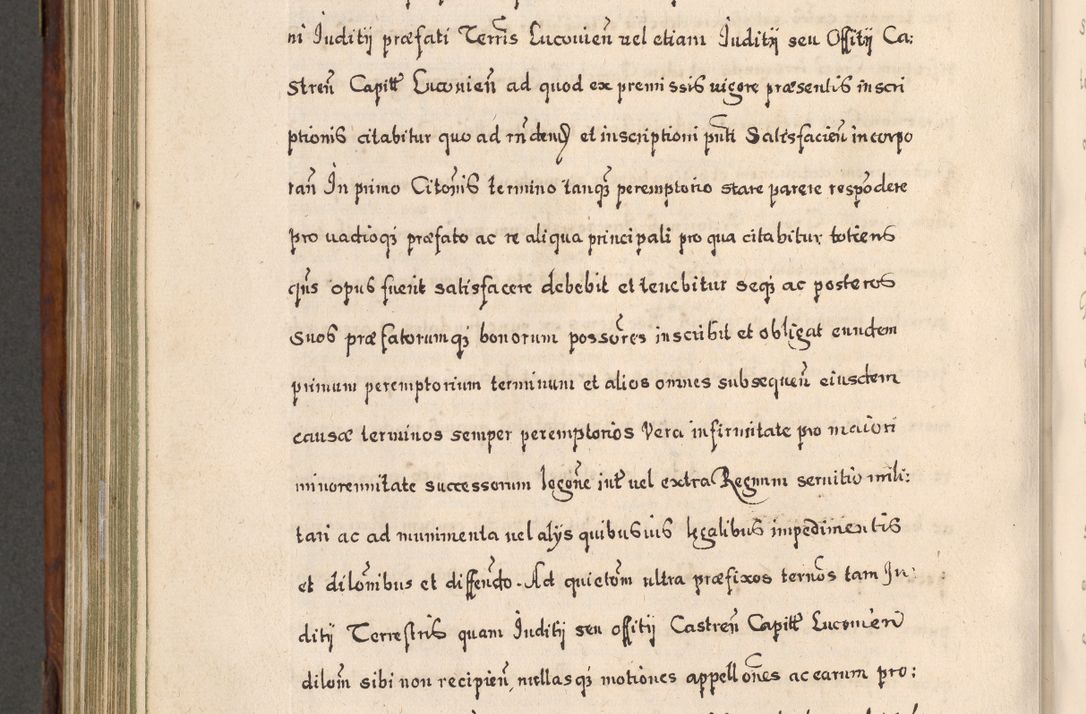 ni Juditij præfati Terris Lucovień vel etiam Juditij seu Offitij Ca:
streń Capitł Lucovień ad quod ex premissis vigore præsentis inscri
ptionis citabitur quo ad et inscriptioni pñti Satisfacień in corpo
rań In primo Citoñis termino tanqȝ peremptorio stare parere respõdere
pro vadioqȝ præfato ac re aliqua principali pro qua citabitur totiens
qñs opus fuerit satisfacere debebit et tenebitur seqȝ ac posteros
suos præfatorumqȝ bonorum possőres inscribit et obligat eundem
primum peremptorium terminum et alios omnes subsequeń eiusdem
causæ terminos semper peremptorios Vera infirmitate pro maiori
minorennitate successorum legőne int̃ vel extra Regnum servitio mili:
tari ac ad munimenta vel alys quibusvis legalibus impedimentis
et dilőnibus et diffeńdo. Ad quietőm ultra præfixos termős tam Ju:
ditij Terrestris quam Juditij seu offitij Castreń Capitł Lucovień
dilőm sibi non recipień, nullasqȝ motiones appellőnes ac earum pro: